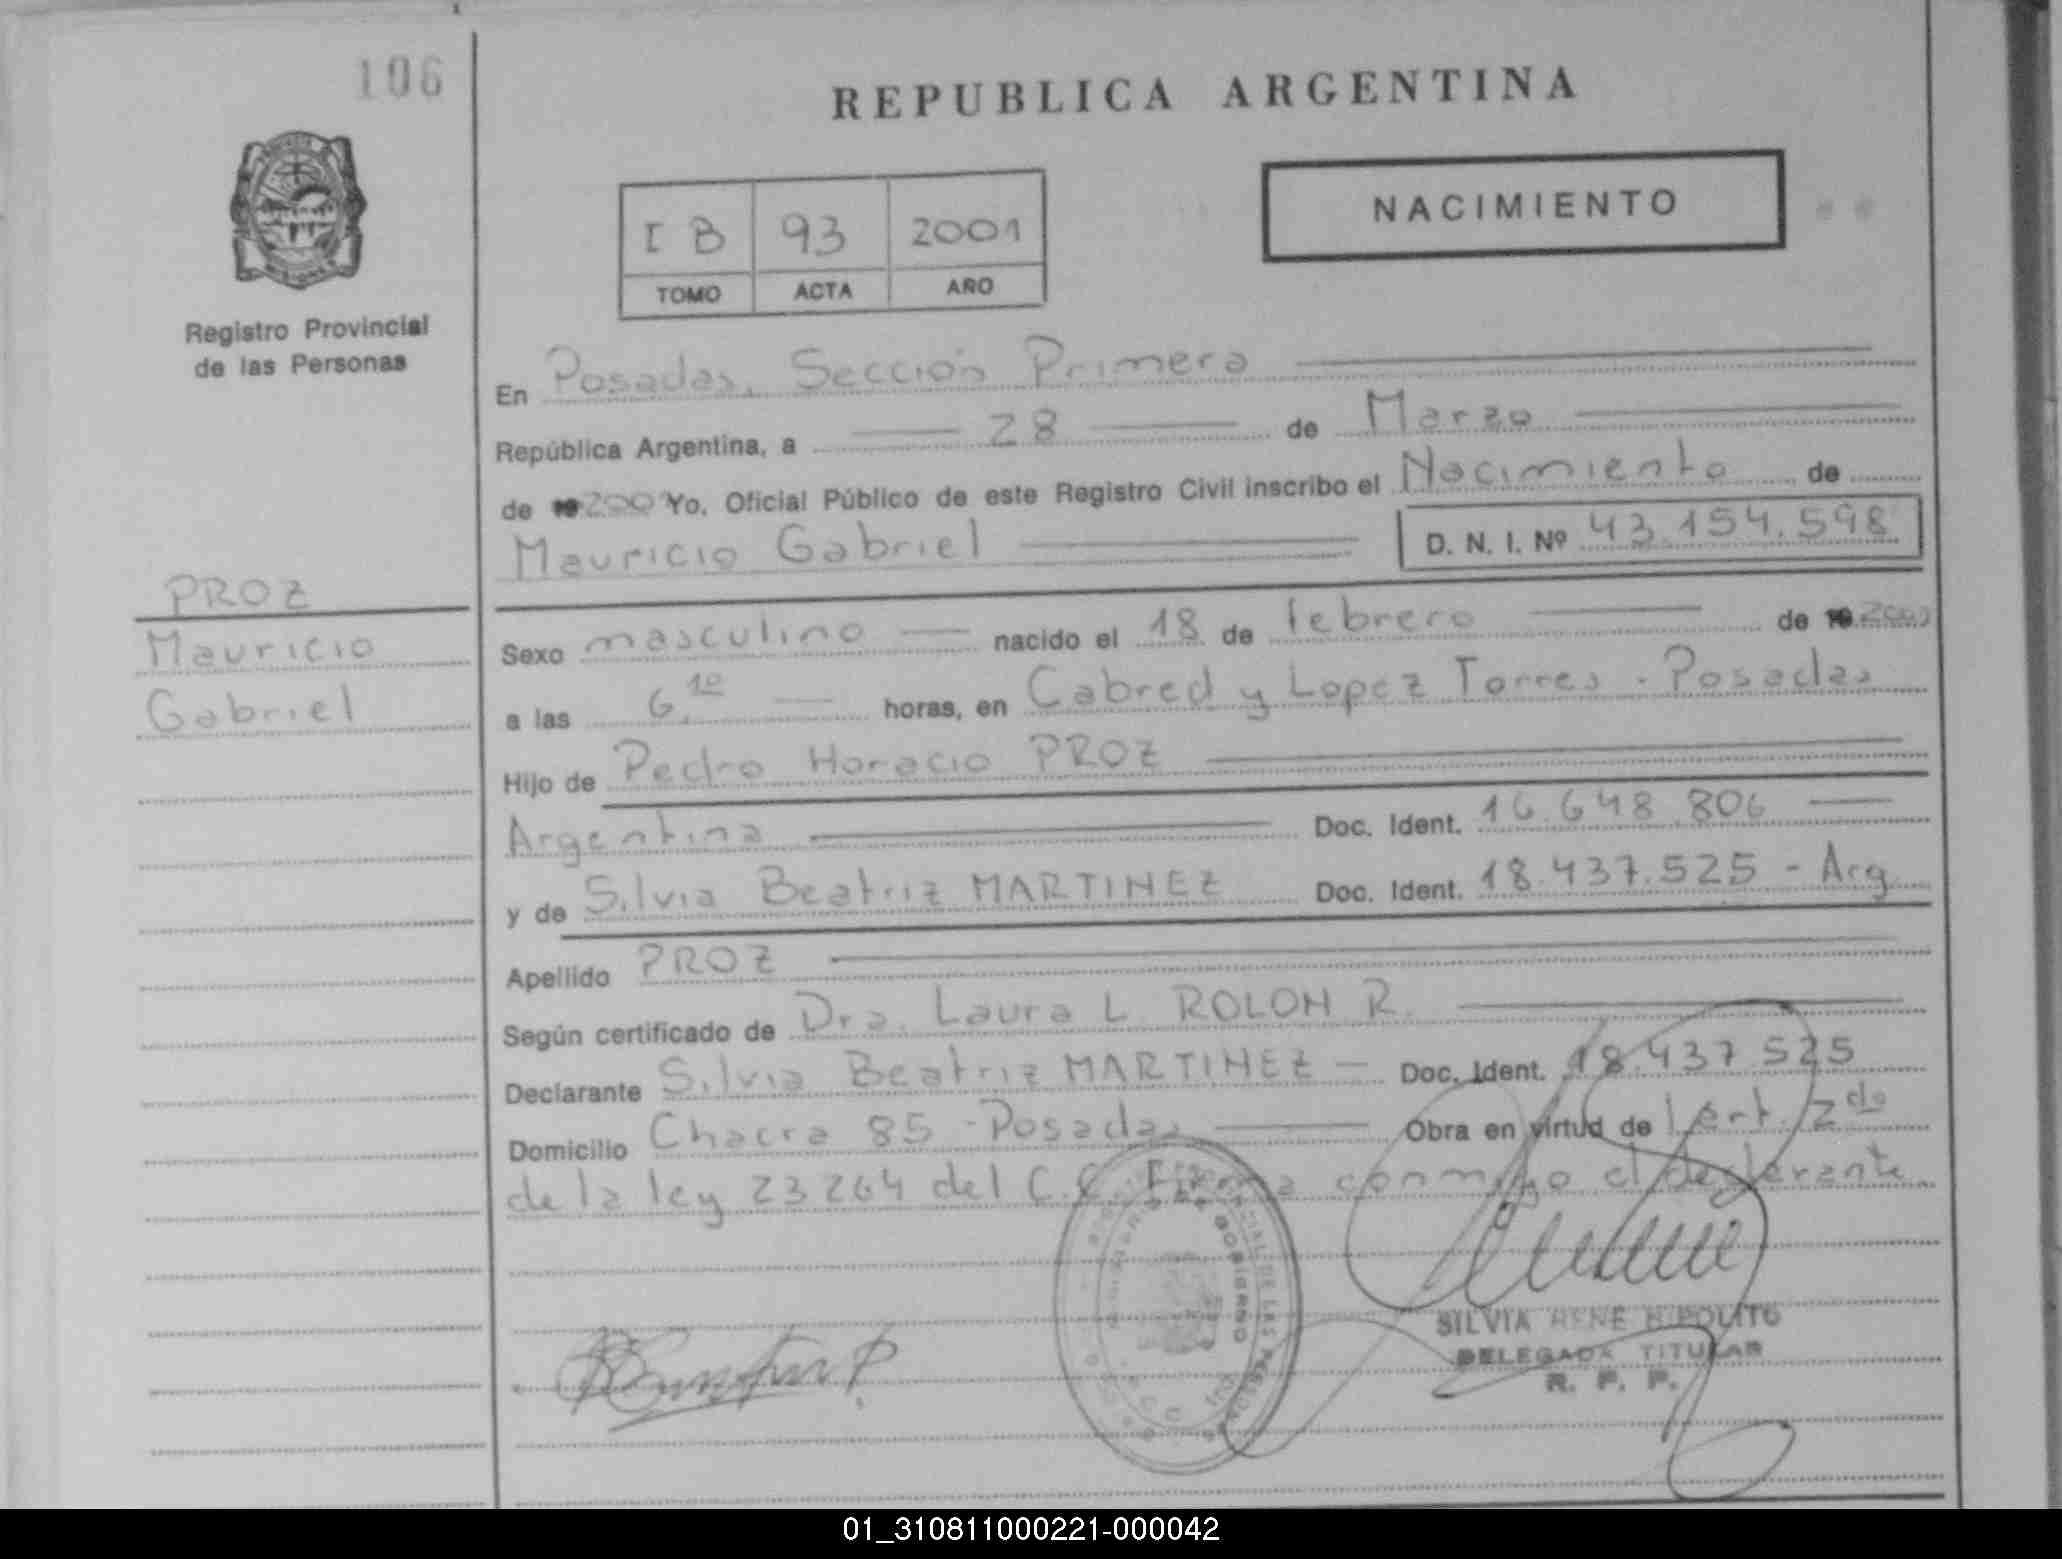 106
REPUBLICA ARGENTINA
NACIMIENTO
I B 93 2001
TOMO ACTA AÑO
Registro Provincial
de las Personas
En Posadas, Sección Primera
República Argentina, a 28 de Marzo
de 2001 Yo, Oficial Público de este Registro Civil inscribo el Nacimiento de
Mauricio Gabriel D. N. I. Nº 43.154.598
PROZ
Mauricio
Gabriel
Sexo masculino nacido el 18 de febrero de 2001
a las 6,10 horas, en Cabred y Lopez Torres - Posadas
Hijo de Pedro Horacio PROZ
Argentina Doc. Ident. 16.648.806
y de Silvia Beatriz MARTINEZ Doc. Ident. 18.437.525 - Arg
Apellido PROZ
Según certificado de Dra. Laura L. ROLON R.
Declarante Silvia Beatriz MARTINEZ Doc. Ident. 18.437.525
Domicilio Chacra 85 - Posadas Obra en virtud de l art. 2do
de la ley 23264 del C.C. Firma conmigo el declarante
SILVIA RENE HIPOLITO
DELEGADA TITULAR
R. P. P.
01_310811000221-000042